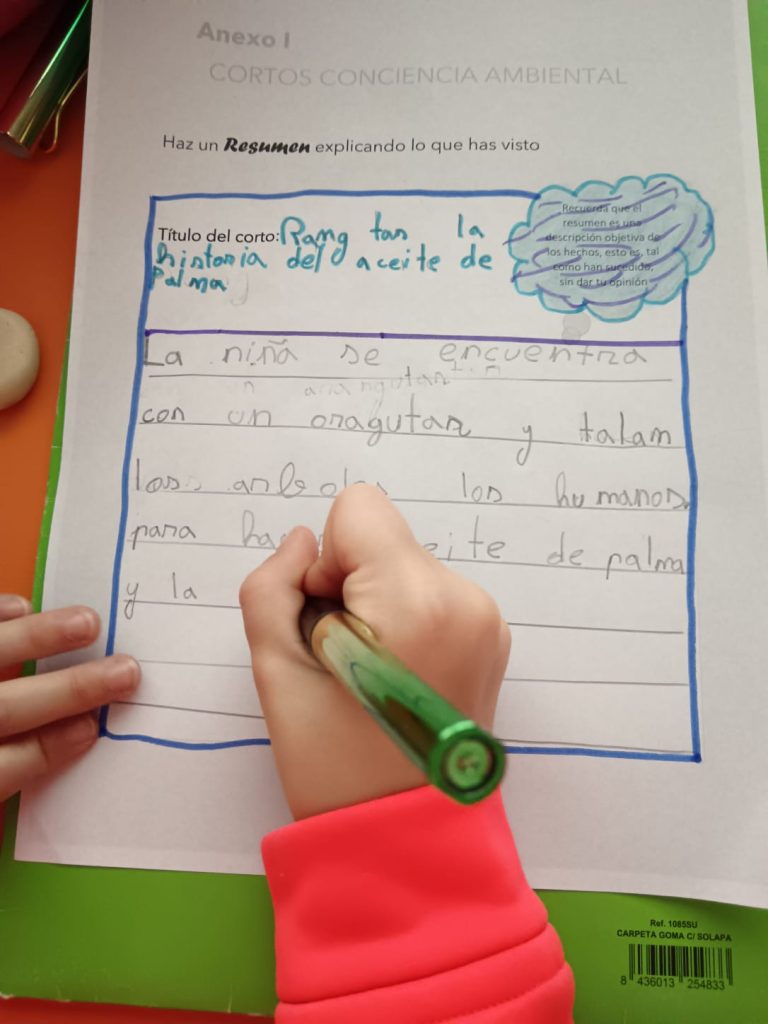 Anexo I
CORTOS CONCIENCIA AMBIENTAL
Haz un Resumen explicando lo que has visto
Título del corto: Rang tan la
historia del aceite de
Palma
Recuerda que el
resumen es una
descripción objetiva de
los hechos, esto es, tal
como han sucedido,
sin dar tu opinión
La niña se encuentra
con un oragutan y talam
los arboles los humanos
para eite de palma
y la
Ref. 1085SU
CARPETA GOMA C/ SOLAPA
8 436013 254833